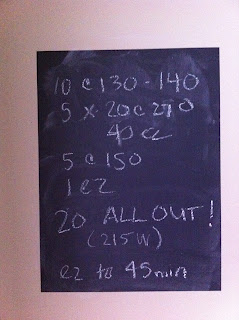 10 @ 130 - 140
5 x 20 @ 270
40 ez
5 @ 150
1 ez
20 ALL OUT!
(215W)
ez to 45min